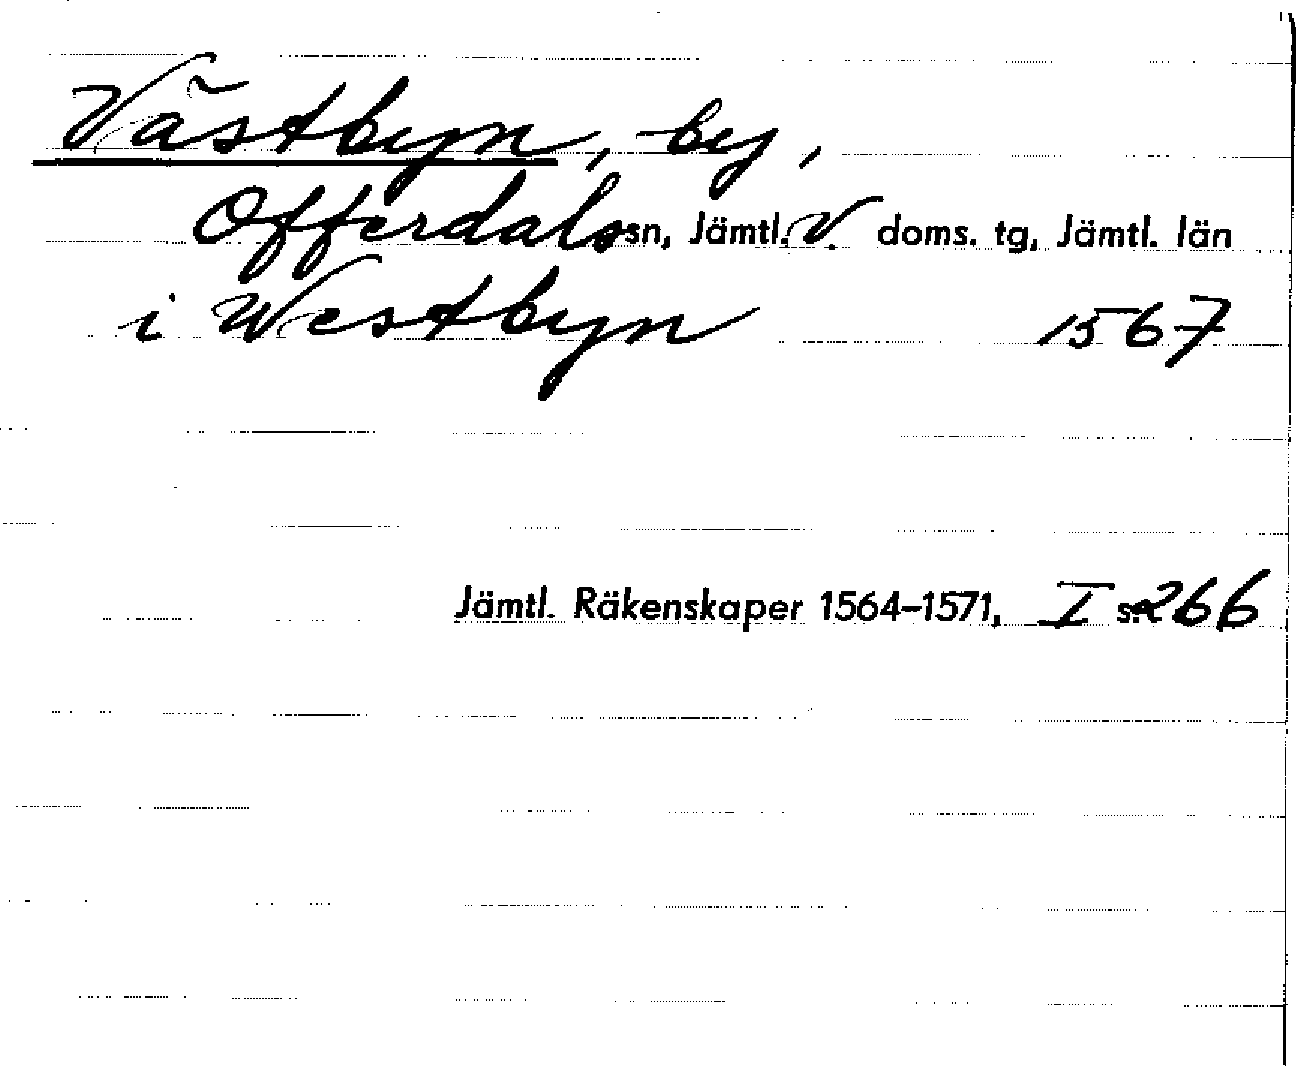 Västbyn, by,
Offerdals sn, Jämtl. V. doms. tg, Jämtl. län
i Westbyn 1567
Jämtl. Räkenskaper 1564–1571, I s. 266